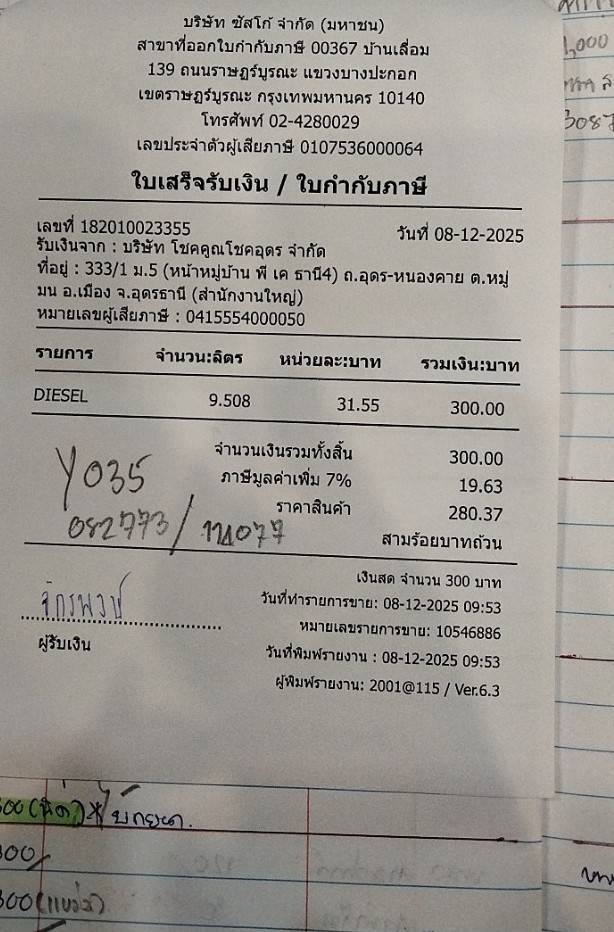 บริษัท ซัสโก้ จำกัด (มหาชน)
สาขาที่ออกใบกำกับภาษี 00367 บ้านเลื่อม
139 ถนนราษฎร์บูรณะ แขวงบางปะกอก
เขตราษฎร์บูรณะ กรุงเทพมหานคร 10140
โทรศัพท์ 02-4280029
เลขประจำตัวผู้เสียภาษี 0107536000064
ใบเสร็จรับเงิน / ใบกำกับภาษี
เลขที่ 182010023355 วันที่ 08-12-2025
รับเงินจาก : บริษัท โชคคูณโชคอุดร จำกัด
ที่อยู่ : 333/1 ม.5 (หน้าหมู่บ้าน พี เค ธานี4) ถ.อุดร-หนองคาย ต.หมู
มน อ.เมือง จ.อุดรธานี (สำนักงานใหญ่)
หมายเลขผู้เสียภาษี : 0415554000050
รายการ จำนวน:ลิตร หน่วยละ:บาท รวมเงิน:บาท
DIESEL 9.508 31.55 300.00
จำนวนเงินรวมทั้งสิ้น 300.00
ภาษีมูลค่าเพิ่ม 7% 19.63
ราคาสินค้า 280.37
สามร้อยบาทถ้วน
Y035
082773/
เงินสด จำนวน 300 บาท
วันที่ทำรายการขาย: 08-12-2025 09:53
หมายเลขรายการขาย: 10546886
วันที่พิมพ์รายงาน : 08-12-2025 09:53
ผู้พิมพ์รายงาน: 2001@115 / Ver.6.3
จักรพงษ์
ผู้รับเงิน
1,000
3087